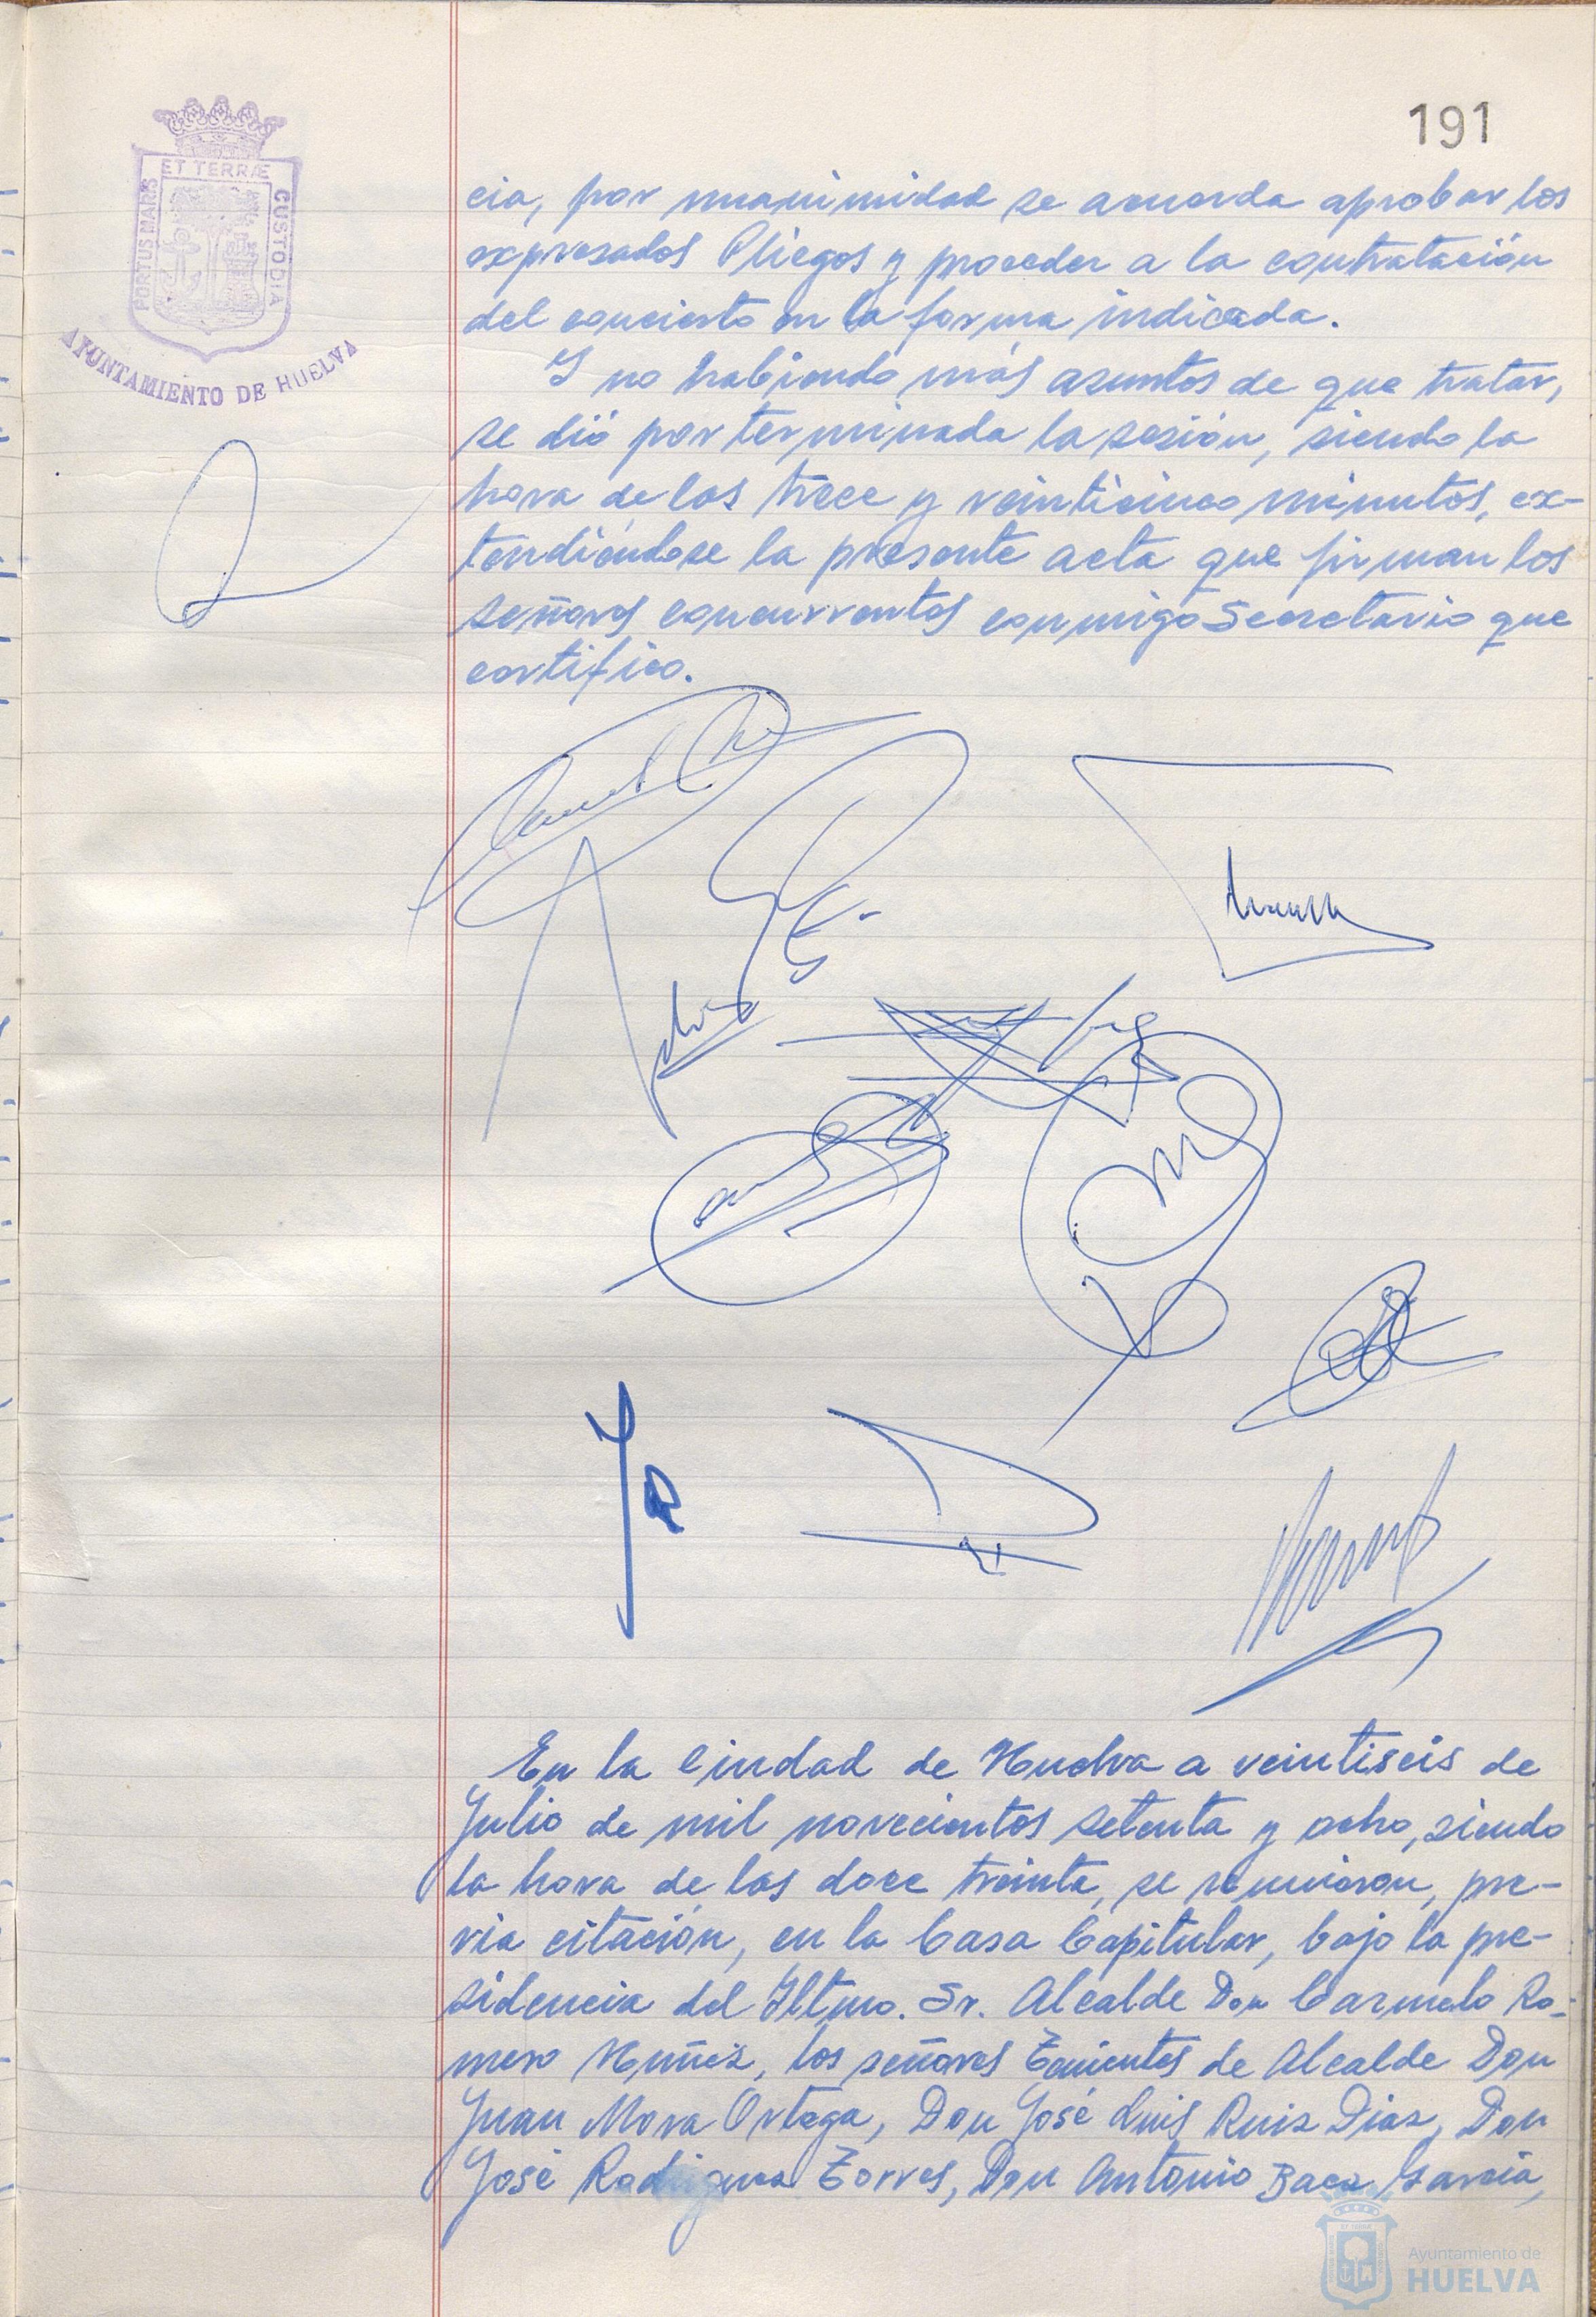 191
ET TERRÆ
PORTUS MARIS
CUSTODIA
AYUNTAMIENTO DE HUELVA
cia, por unanimidad se acuerda aprobar los
expresados Pliegos y proceder a la contratación
del concierto en la forma indicada.
Y no habiendo más asuntos de que tratar,
se dió por terminada la sesión, siendo la
hora de las trece y veinticinco minutos, ex-
tendiéndose la presente acta que firman los
señores concurrentes conmigo Secretario que
certifico.
En la Ciudad de Huelva a veintiseis de
Julio de mil novecientos setenta y ocho, siendo
la hora de las doce treinta, se reunieron, pre-
via citación, en la Casa Capitular, bajo la pre-
sidencia del Iltmo. Sr. Alcalde Don Carmelo Ro-
mero Nuñez, los señores Tenientes de Alcalde Don
Juan Mora Ortega, Don José Luis Ruiz Diaz, Don
José Rodriguez Torres, Don Antonio Baca Garcia,
Ayuntamiento de
HUELVA